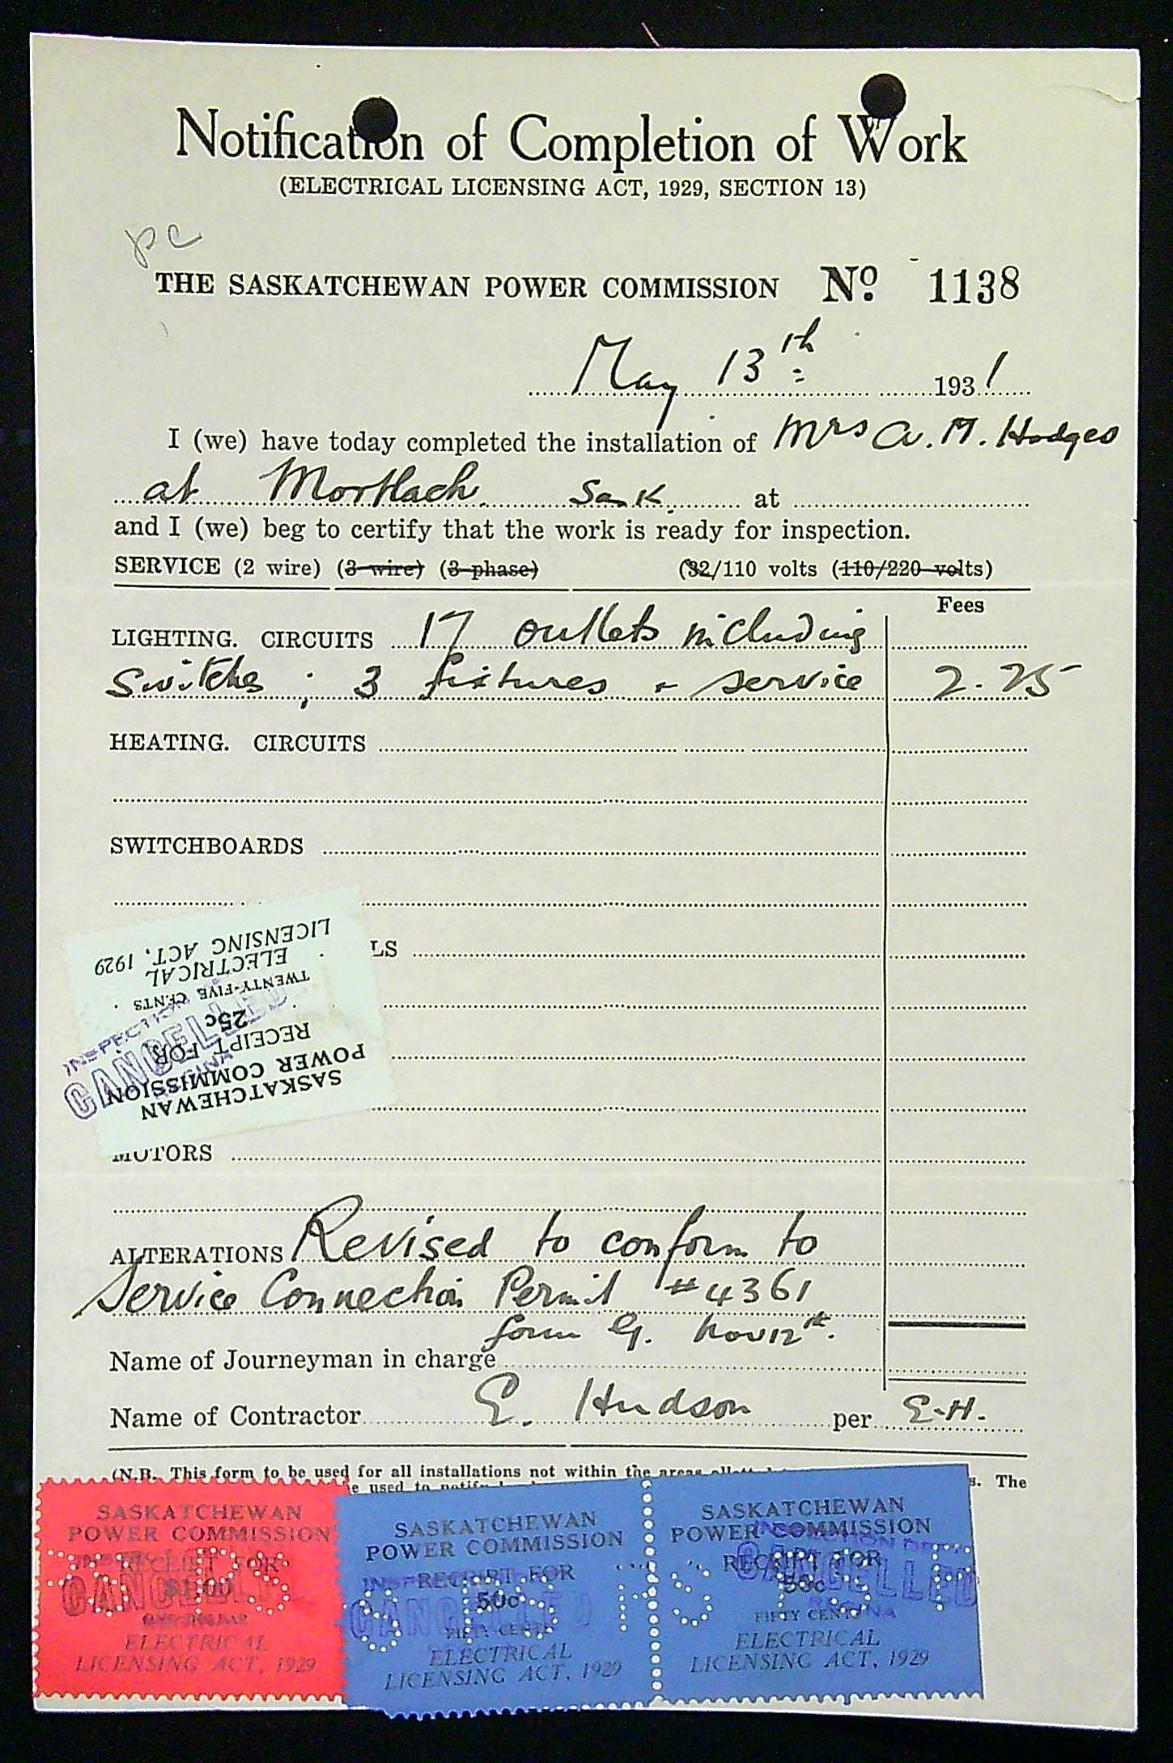 Notification of Completion of Work
(ELECTRICAL LICENSING ACT, 1929, SECTION 13)
pc
THE SASKATCHEWAN POWER COMMISSION No. 1138
May 13th 1931
I (we) have today completed the installation of Mrs A. M. Hodges
at Mortlach Sask. at
and I (we) beg to certify that the work is ready for inspection.
SERVICE (2 wire) (3 wire) (3 phase) (32/110 volts (110/220 volts)
Fees
LIGHTING. CIRCUITS 17 outlets including
switches ; 3 fixtures + service 2.25
HEATING. CIRCUITS
SWITCHBOARDS
LS
MOTORS
ALTERATIONS Revised to conform to
Service Connection Permit #4361
form G. Nov 12th.
Name of Journeyman in charge
Name of Contractor E. Hudson per E.H.
(N.B. This form to be used for all installations not within the areas s. The
e used to
SASKATCHEWAN
POWER COMMISSION
RECEIPT FOR
25c
TWENTY-FIVE CENTS
ELECTRICAL
LICENSING ACT, 1929
INSPECTION
CANCELLED
REGINA
SASKATCHEWAN
POWER COMMISSION
RECEIPT FOR
$1.00
ELECTRICAL
LICENSING ACT, 1929
CANCELLED
SASKATCHEWAN
POWER COMMISSION
RECEIPT FOR
50c
FIFTY CENTS
ELECTRICAL
LICENSING ACT, 1929
CANCELLED
SASKATCHEWAN
POWER COMMISSION
RECEIPT FOR
50c
FIFTY CENTS
ELECTRICAL
LICENSING ACT, 1929
CANCELLED
REGINA